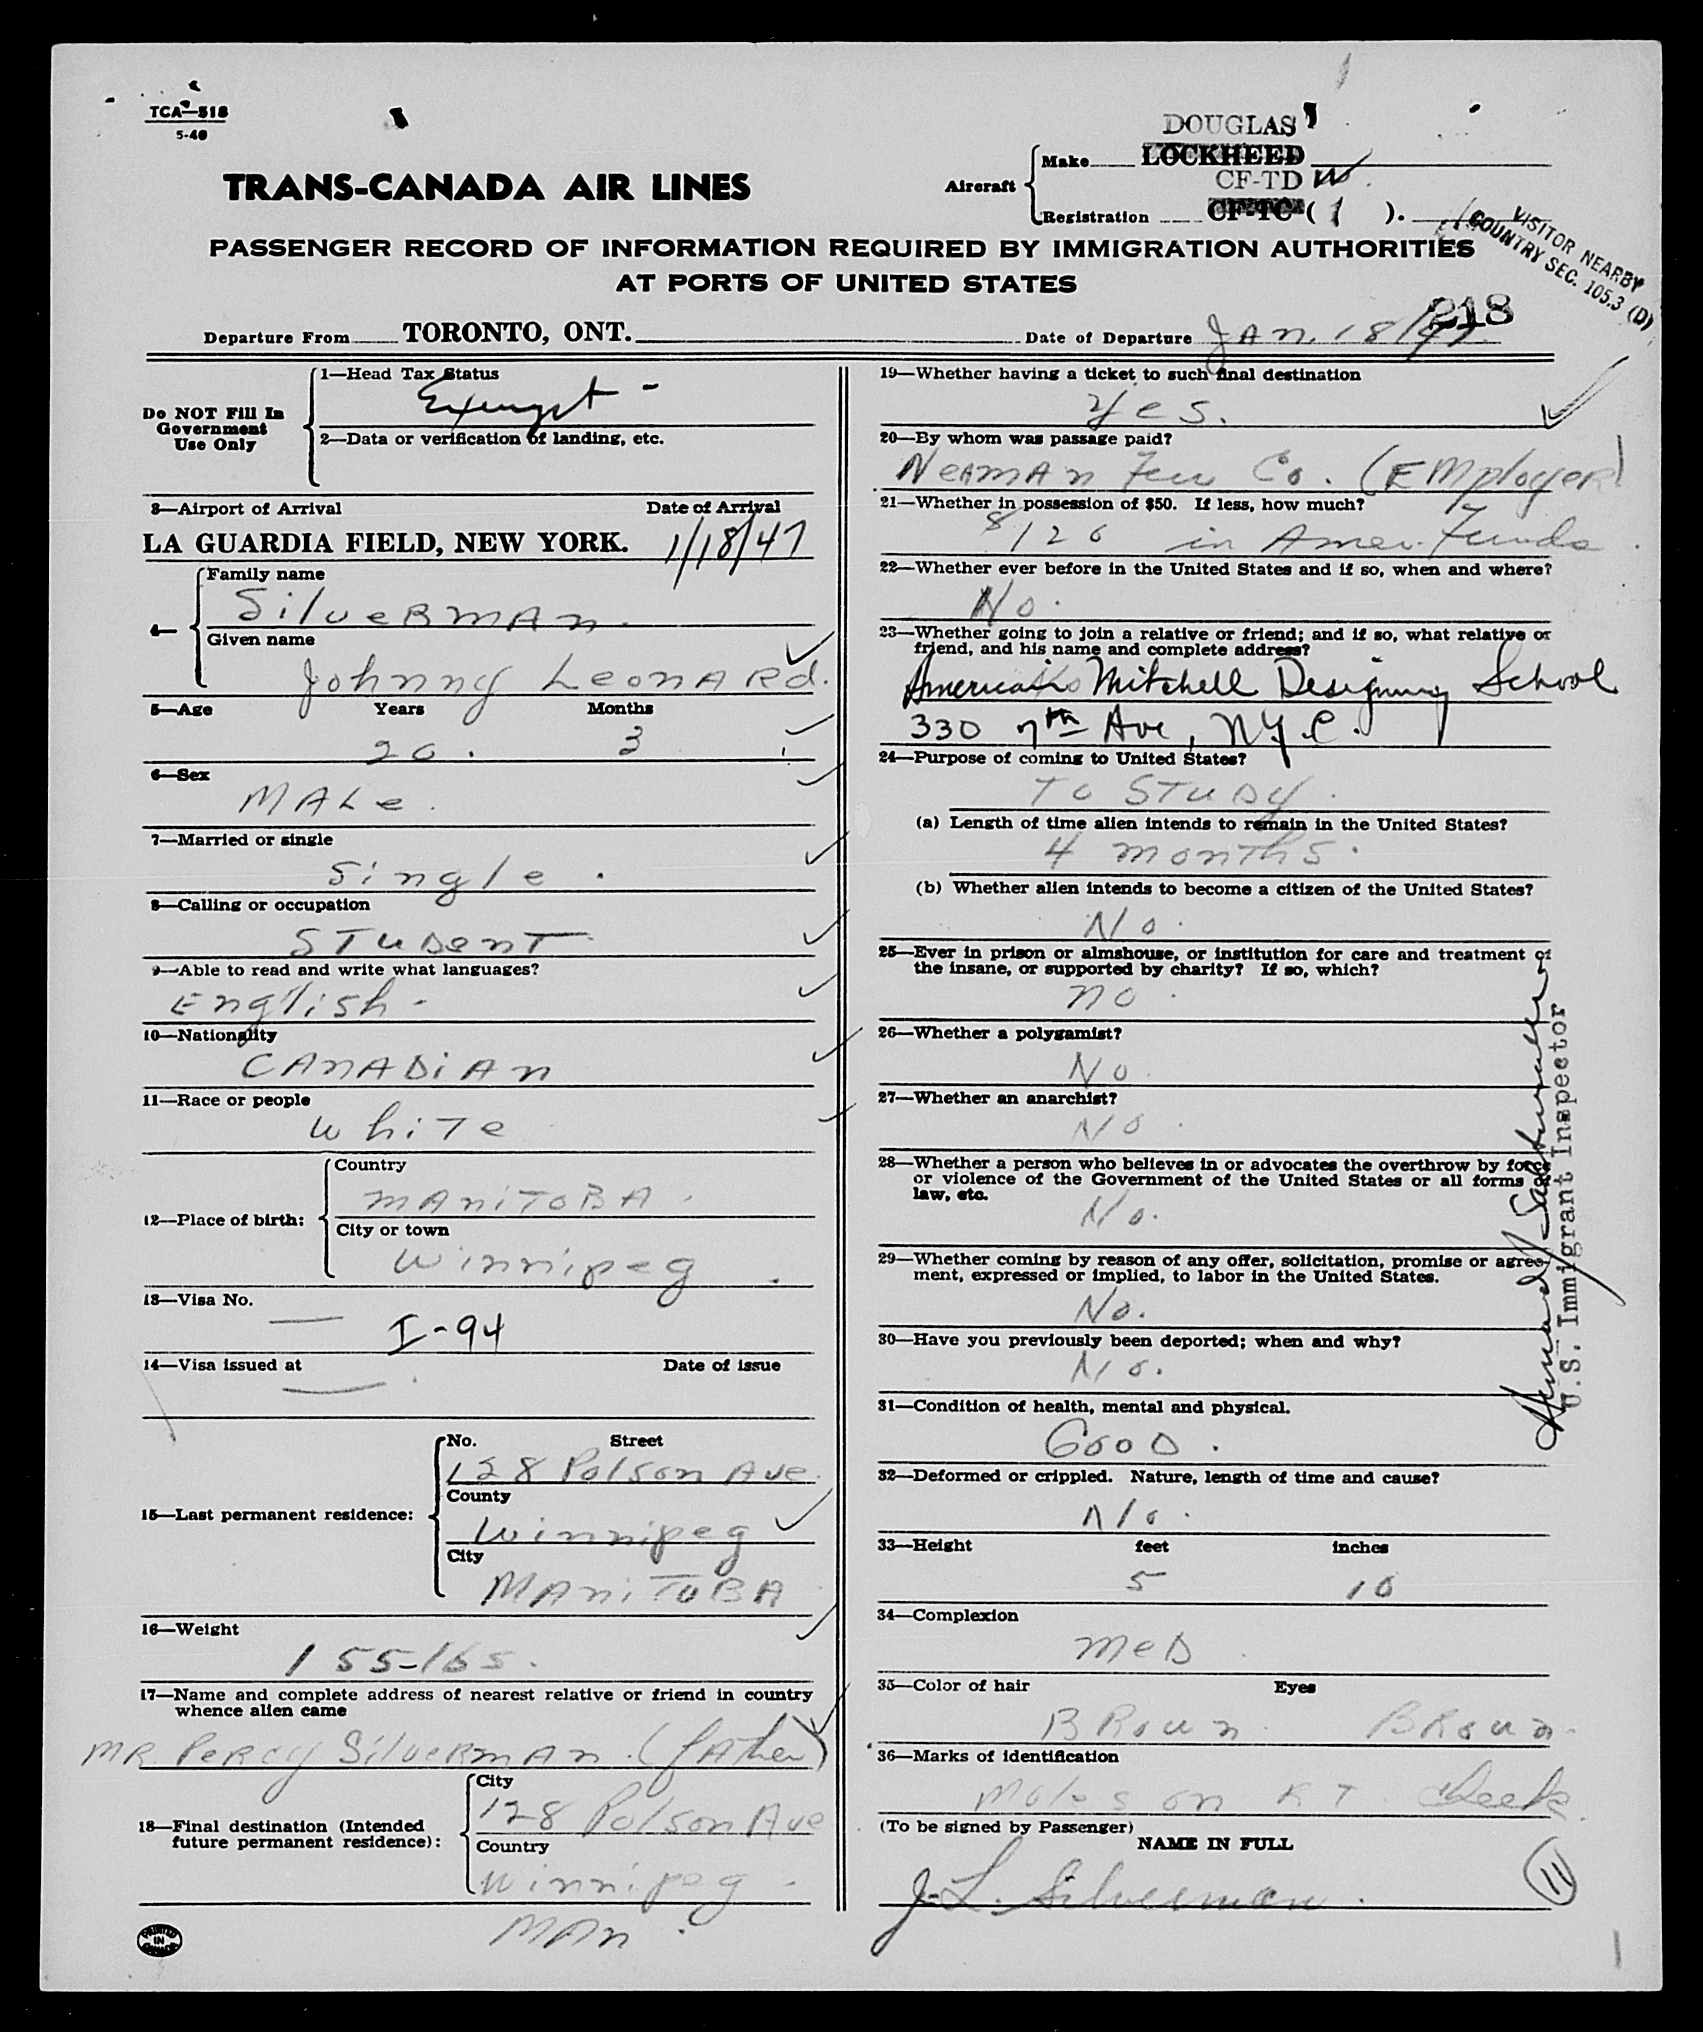 TCA—518
5-40
DOUGLAS
Aircraft
Make LOCKHEED
CF-TD W
Registration CF-TC-( 1 ).
VISITOR NEARBY
COUNTRY SEC. 105.3 (D)
TRANS-CANADA AIR LINES
PASSENGER RECORD OF INFORMATION REQUIRED BY IMMIGRATION AUTHORITIES
AT PORTS OF UNITED STATES
218
Departure From TORONTO, ONT. Date of Departure JAN. 18/47.
Do NOT Fill In
Government
Use Only
1—Head Tax Status
Exempt -
2—Data or verification of landing, etc.
3—Airport of Arrival Date of Arrival
LA GUARDIA FIELD, NEW YORK. 1/18/47
4—
Family name
SilveRMAn.
Given name
Johnny LeonARd.
5—Age Years Months
20. 3
6—Sex
MALe.
7—Married or single
Single.
8—Calling or occupation
STuDenT
9—Able to read and write what languages?
English -
10—Nationality
CAnADiAn
11—Race or people
WhiTe
12—Place of birth:
Country
MAniTOBA.
City or town
Winnipeg.
13—Visa No.
— I-94
14—Visa issued at Date of issue
—.
15—Last permanent residence:
No. Street
128 Polson Ave.
County
Winnipeg
City
MAniTOBA
16—Weight
155-165.
17—Name and complete address of nearest relative or friend in country
whence alien came
MR. PeRcy SilveRmAn. (fAther)
18—Final destination (Intended
future permanent residence):
City
128 Polson Ave
Country
Winnipeg -
MAn.
PRINTED
IN
CANADA
19—Whether having a ticket to such final destination
Yes.
20—By whom was passage paid?
NeAMAn Fur Co. (EMployeR)
21—Whether in possession of $50. If less, how much?
$126 in Amer. Funds.
22—Whether ever before in the United States and if so, when and where?
No.
23—Whether going to join a relative or friend; and if so, what relative or
friend, and his name and complete address?
American Mitchell Designing School
330 7th Ave, N.Y.C.
24—Purpose of coming to United States?
To STuDy.
(a) Length of time alien intends to remain in the United States?
4 monThs.
(b) Whether alien intends to become a citizen of the United States?
No.
25—Ever in prison or almshouse, or institution for care and treatment of
the insane, or supported by charity? If so, which?
no.
26—Whether a polygamist?
No.
27—Whether an anarchist?
No.
28—Whether a person who believes in or advocates the overthrow by force
or violence of the Government of the United States or all forms of
law, etc.
No.
29—Whether coming by reason of any offer, solicitation, promise or agree-
ment, expressed or implied, to labor in the United States.
No.
30—Have you previously been deported; when and why?
No.
31—Condition of health, mental and physical.
GooD.
32—Deformed or crippled. Nature, length of time and cause?
No.
33—Height feet inches
5 10
34—Complexion
MeD.
35—Color of hair Eyes
BRown. BRown.
36—Marks of identification
Moles on RT. cheek.
(To be signed by Passenger)
NAME IN FULL
J. L. Silverman.
11
U.S. Immigrant Inspector